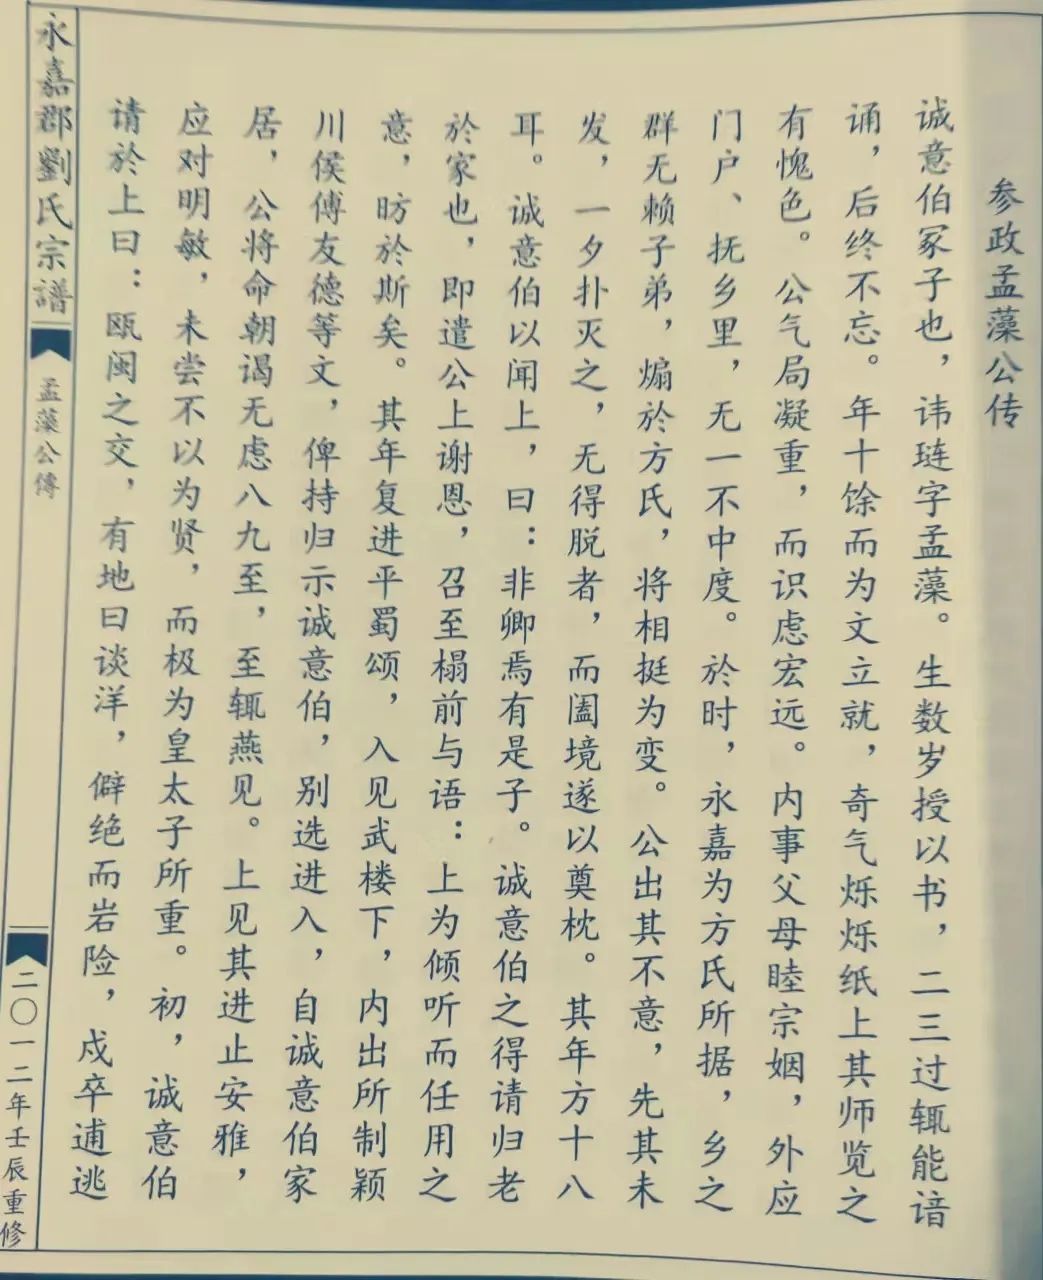 参政孟藻公传
诚意伯冢子也，讳琏字孟藻。生数岁授以书，二三过辄能谙
诵，后终不忘。年十馀而为文立就，奇气烁烁纸上其师览之
有愧色。公气局凝重，而识虑宏远。内事父母睦宗姻，外应
门户、抚乡里，无一不中度。於时，永嘉为方氏所据，乡之
群无赖子弟，煽於方氏，将相挺为变。公出其不意，先其未
发，一夕扑灭之，无得脱者，而阖境遂以奠枕。其年方十八
耳。诚意伯以闻上，曰：非卿焉有是子。诚意伯之得请归老
於家也，即遣公上谢恩，召至榻前与语：上为倾听而任用之
意，昉於斯矣。其年复进平蜀颂，入见武楼下，内出所制颖
川侯傅友德等文，俾持归示诚意伯，别选进入，自诚意伯家
居，公将命朝谒无虑八九至，至辄燕见。上见其进止安雅，
应对明敏，未尝不以为贤，而极为皇太子所重。初，诚意伯
请於上曰：瓯闽之交，有地曰谈洋，僻绝而岩险，戍卒逋逃
永嘉郡劉氏宗譜
孟藻公傳
二〇一二年壬辰重修